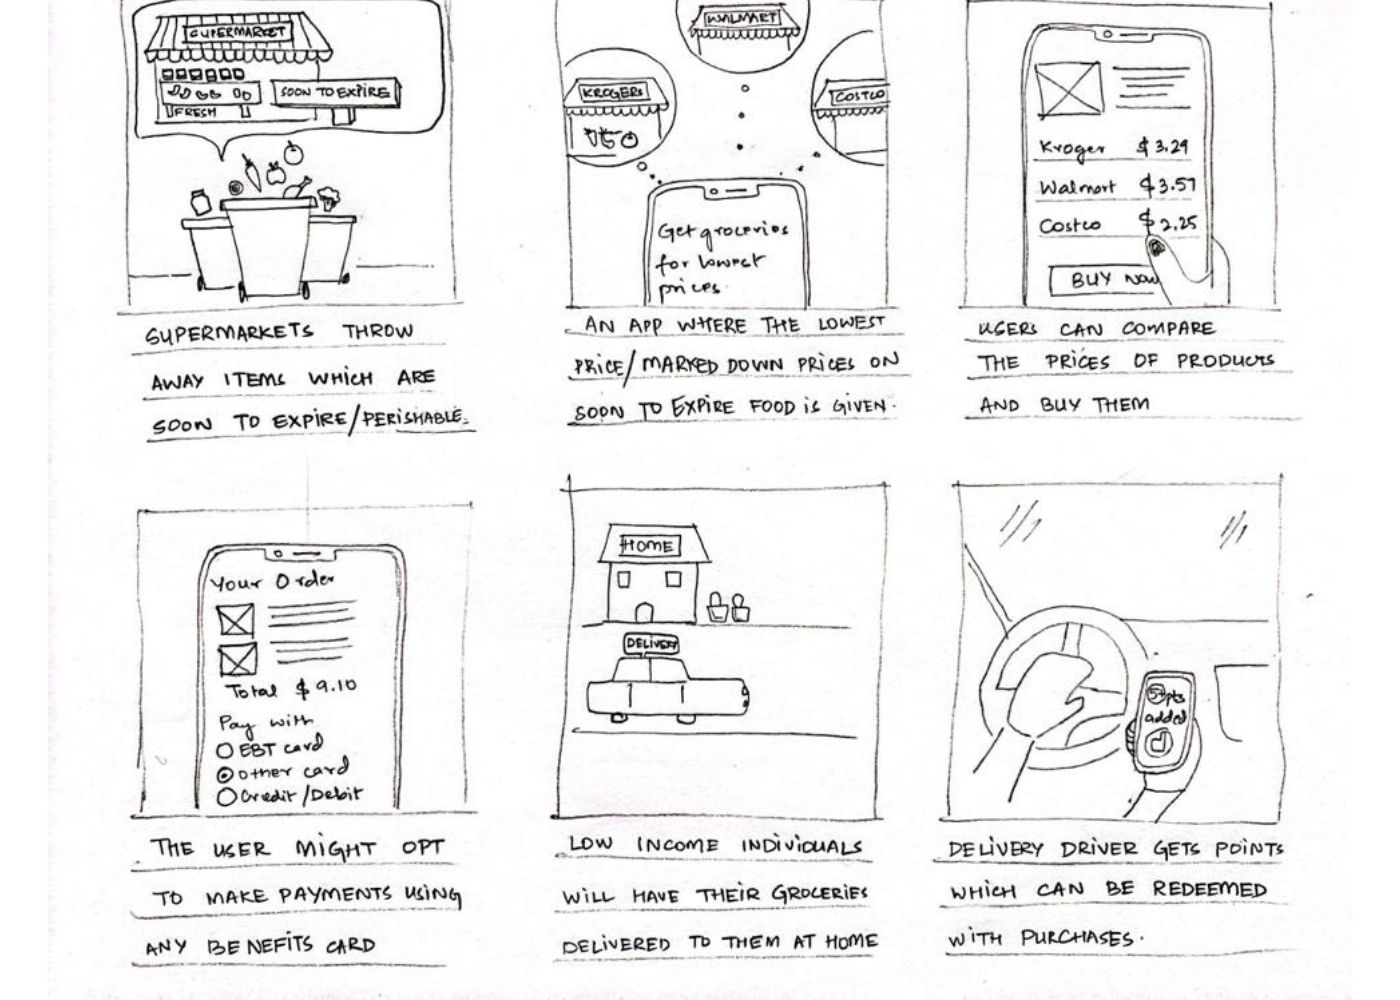 SUPERMARKET
SOON TO EXPIRE
FRESH
SUPERMARKETS THROW
AWAY ITEMS WHICH ARE
SOON TO EXPIRE/PERISHABLE.
WALMART
KROGERS
COSTCO
Get groceries
for lowest
prices.
AN APP WHERE THE LOWEST
PRICE/MARKED DOWN PRICES ON
SOON TO EXPIRE FOOD is GIVEN.
Kroger $3.29
Walmart $3.57
Costco $2.25
BUY NOW
USERS CAN COMPARE
THE PRICES OF PRODUCTS
AND BUY THEM
Your Order
Total $9.10
Pay with
EBT card
other card
Credit/Debit
THE USER MIGHT OPT
TO MAKE PAYMENTS USING
ANY BENEFITS CARD
HOME
DELIVERY
LOW INCOME INDIVIDUALS
WILL HAVE THEIR GROCERIES
DELIVERED TO THEM AT HOME
5+pts
added
DELIVERY DRIVER GETS POINTS
WHICH CAN BE REDEEMED
WITH PURCHASES.